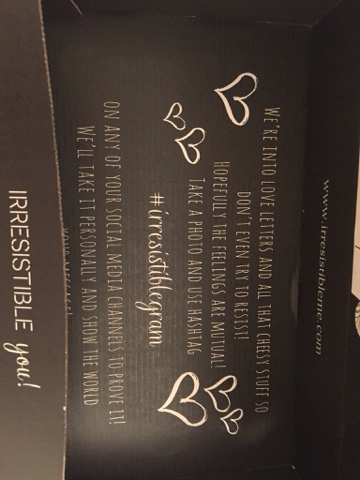 www.irresistibleme.com
WE'RE INTO LOVE LETTERS AND ALL THAT CHEESY STUFF SO
DON'T EVEN TRY TO RESIST!
HOPEFULLY THE FEELINGS ARE MUTUAL!
TAKE A PHOTO AND USE HASHTAG
#irresistiblegram
ON ANY OF YOUR SOCIAL MEDIA CHANNELS TO PROVE IT!
WE'LL TAKE IT PERSONALLY AND SHOW THE WORLD
IRRESISTIBLE you!